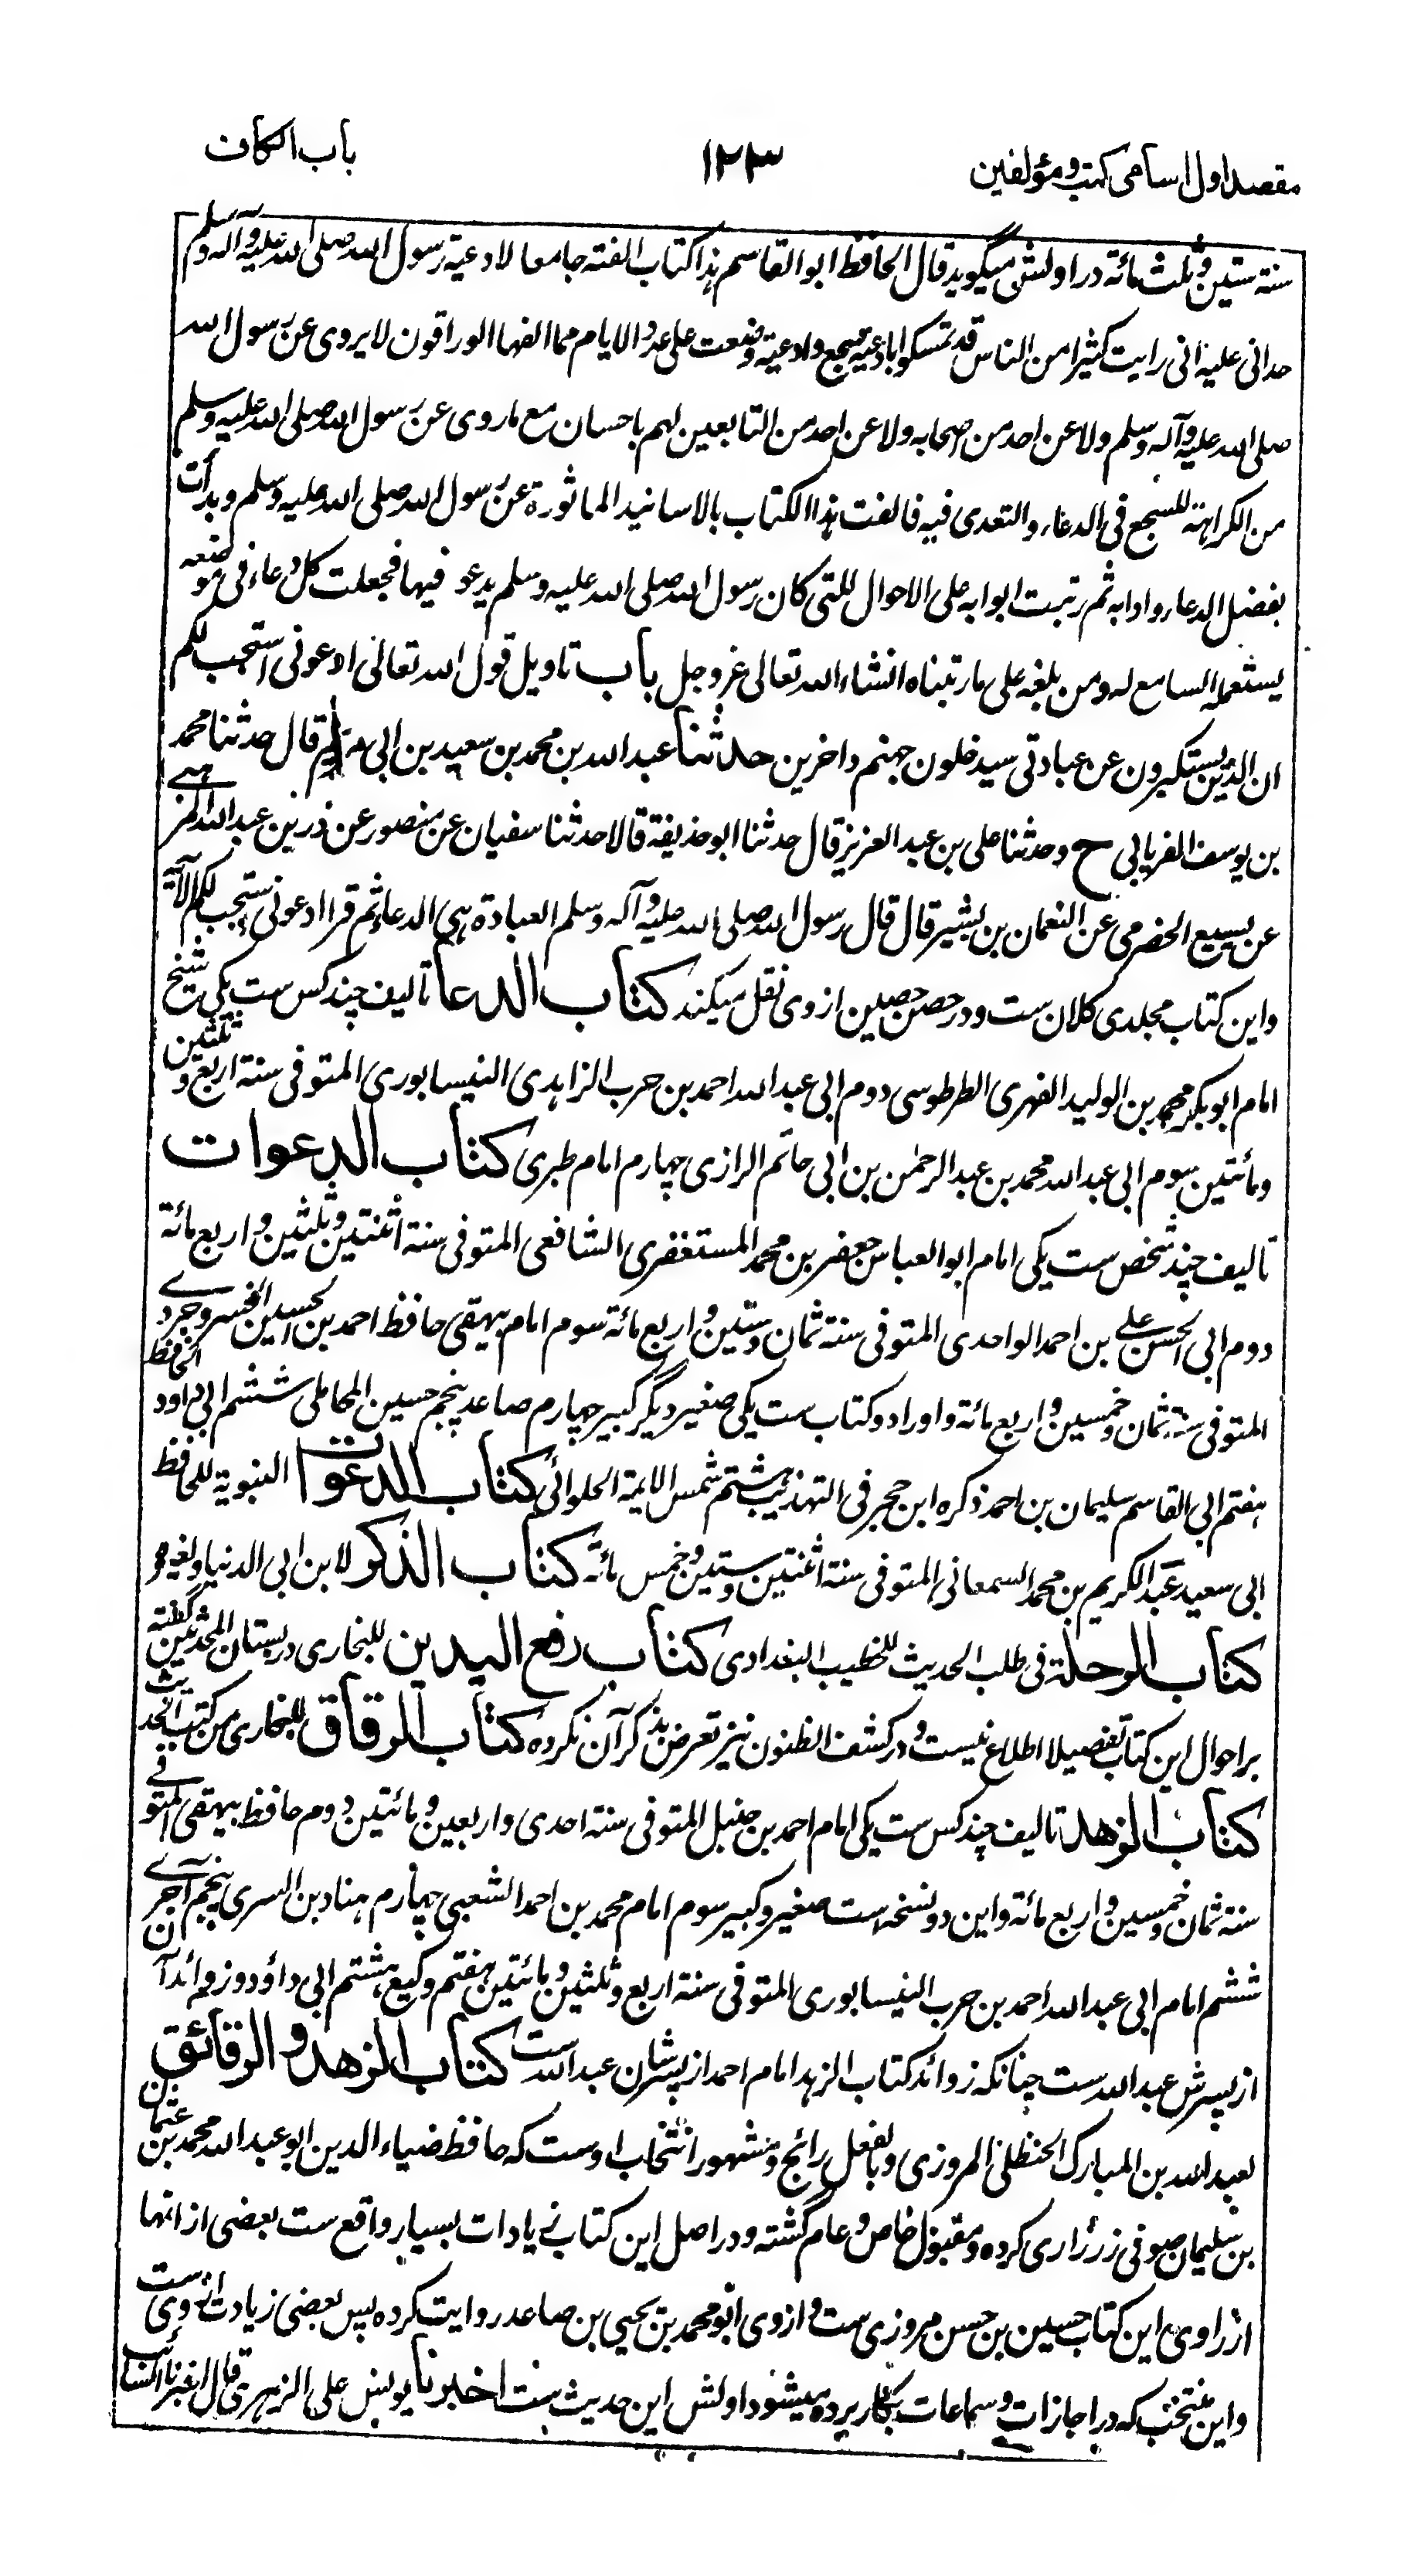 مقصد اول اسامی کتب و مؤلفین ۱۲۳ باب الکاف
سنة ستین و ثلث مائة در اولش میگوید قال الحافظ ابو القاسم هذا کتاب الفته جامعا لادعیة رسول الله صلی الله علیه وآله وسلم
حدانی علیه انی رایت کثیرا من الناس قد تمسکوا بادعیة سجع وادعیة وضعت علی عدد الایام مما الفها الوراقون لا یروی عن رسول الله
صلی الله علیه وآله وسلم ولا عن احد من اصحابه ولا عن احد من التابعین لهم باحسان مع ما روی عن رسول الله صلی الله علیه وسلم
من الکراهة للسجع فی الدعاء والتعدی فیه فالفت هذا الکتاب بالاسانید الماثورة عن رسول الله صلی الله علیه وسلم وبدأت
بفضل الدعاء وادابه ثم رتبت ابوابه علی الاحوال للتی کان رسول الله صلی الله علیه وسلم یدعو فیها فجعلت کل دعاء فی موضعه
یستعمله السامع له ومن بلغه علی ما رتبناه انشاء الله تعالی عز وجل باب تاویل قول الله تعالی ادعونی استجب لکم
ان الذین یستکبرون عن عبادتی سیدخلون جهنم داخرین حدثنا عبد الله بن محمد بن سعید بن ابی مریم قال حدثنا محمد
بن یوسف الفریابی ح وحدثنا علی بن عبد العزیز قال حدثنا ابو حذیفة قالا حدثنا سفیان عن منصور عن ذر بن عبد الله
عن یسیع الحضرمی عن النعمان بن بشیر قال قال رسول الله صلی الله علیه وآله وسلم العبادة هی الدعاء ثم قرا ادعونی استجب لکم الآیة
و این کتاب مجلدی کلان ست و در حصن حصین ازوی نقل میکند کتاب الدعا تالیف چند کس ست یکی شیخ
امام ابو بکر محمد بن الولید الفهری الطرطوسی دوم ابی عبد الله احمد بن حرب الزاهدی النیسابوری المتوفی سنة اربع و ثلثین
و مائتین سوم ابی عبد الله محمد بن عبد الرحمن بن ابی حاتم الرازی چهارم امام طبری کتاب الدعوات
تالیف چند شخص ست یکی امام ابو العباس جعفر بن محمد المستغفری الشافعی المتوفی سنة اثنتین و ثلثین و اربع مائة
دوم ابی الحسن علی بن احمد الواحدی المتوفی سنة ثمان و ستین و اربع مائة سوم امام بیهقی حافظ احمد بن الحسین الخسروجردی
المتوفی سنة ثمان و خمسین و اربع مائة و او را دو کتاب ست یکی صغیر دیگر کبیر چهارم صاعد پنجم حسین المحاملی ششم ابی داود الحافظ
هفتم ابی القاسم سلیمان بن احمد ذکره ابن حجر فی التهذیب هشتم شمس الایمة الحلوائی کتاب الدعوات النبویة للحافظ
ابی سعید عبد الکریم بن محمد السمعانی المتوفی سنة اثنتین و ستین و خمس مائة کتاب الذکر لابن ابی الدنیا و لغیره
کتاب الرحلة فی طلب الحدیث للخطیب البغدادی کتاب رفع الیدین للبخاری در بستان المحدثین گفته
بر احوال این کتاب تفصیلا اطلاع نیست و در کشف الظنون نیز تعرض بذکر آن نکرده کتاب الرقاق للبخاری من کتب الحدیث
کتاب الزهد تالیف چند کس ست یکی امام احمد بن حنبل المتوفی سنة احدی و اربعین و مائتین دوم حافظ بیهقی المتوفی
سنة ثمان و خمسین و اربع مائة و این دو نسخه است صغیر و کبیر سوم امام محمد بن احمد الشعبی چهارم هناد بن السری پنجم آجری
ششم امام ابی عبد الله احمد بن حرب النیسابوری المتوفی سنة اربع و ثلثین و مائتین هفتم وکیع هشتم ابی داؤد و زوائد آن
از پسرش عبد الله ست چنانکه زوائد کتاب الزهد امام احمد از پسر شان عبد الله ست کتاب الزهد و الرقائق
لعبد الله بن المبارک الحنظلی المروزی و بالفعل رائج و مشهور انتخاب اوست که حافظ ضیاء الدین ابو عبد الله محمد بن عثمان بن
بن سلیمان صوفی زرزاری کرده و مقبول خاص و عام گشته و در اصل این کتاب زیادات بسیار واقع ست بعضی از انها
از راوی این کتاب حسین بن حسن مروزی ست و ازوی ابو محمد بن یحیی بن صاعد روایت کرده پس بعضی زیادت از وی ست
و این منتخب که در اجازات و سماعات بکار برده میشود اولش این حدیث ست اخبرنا یونس علی الزهری قال اخبرنا السائب